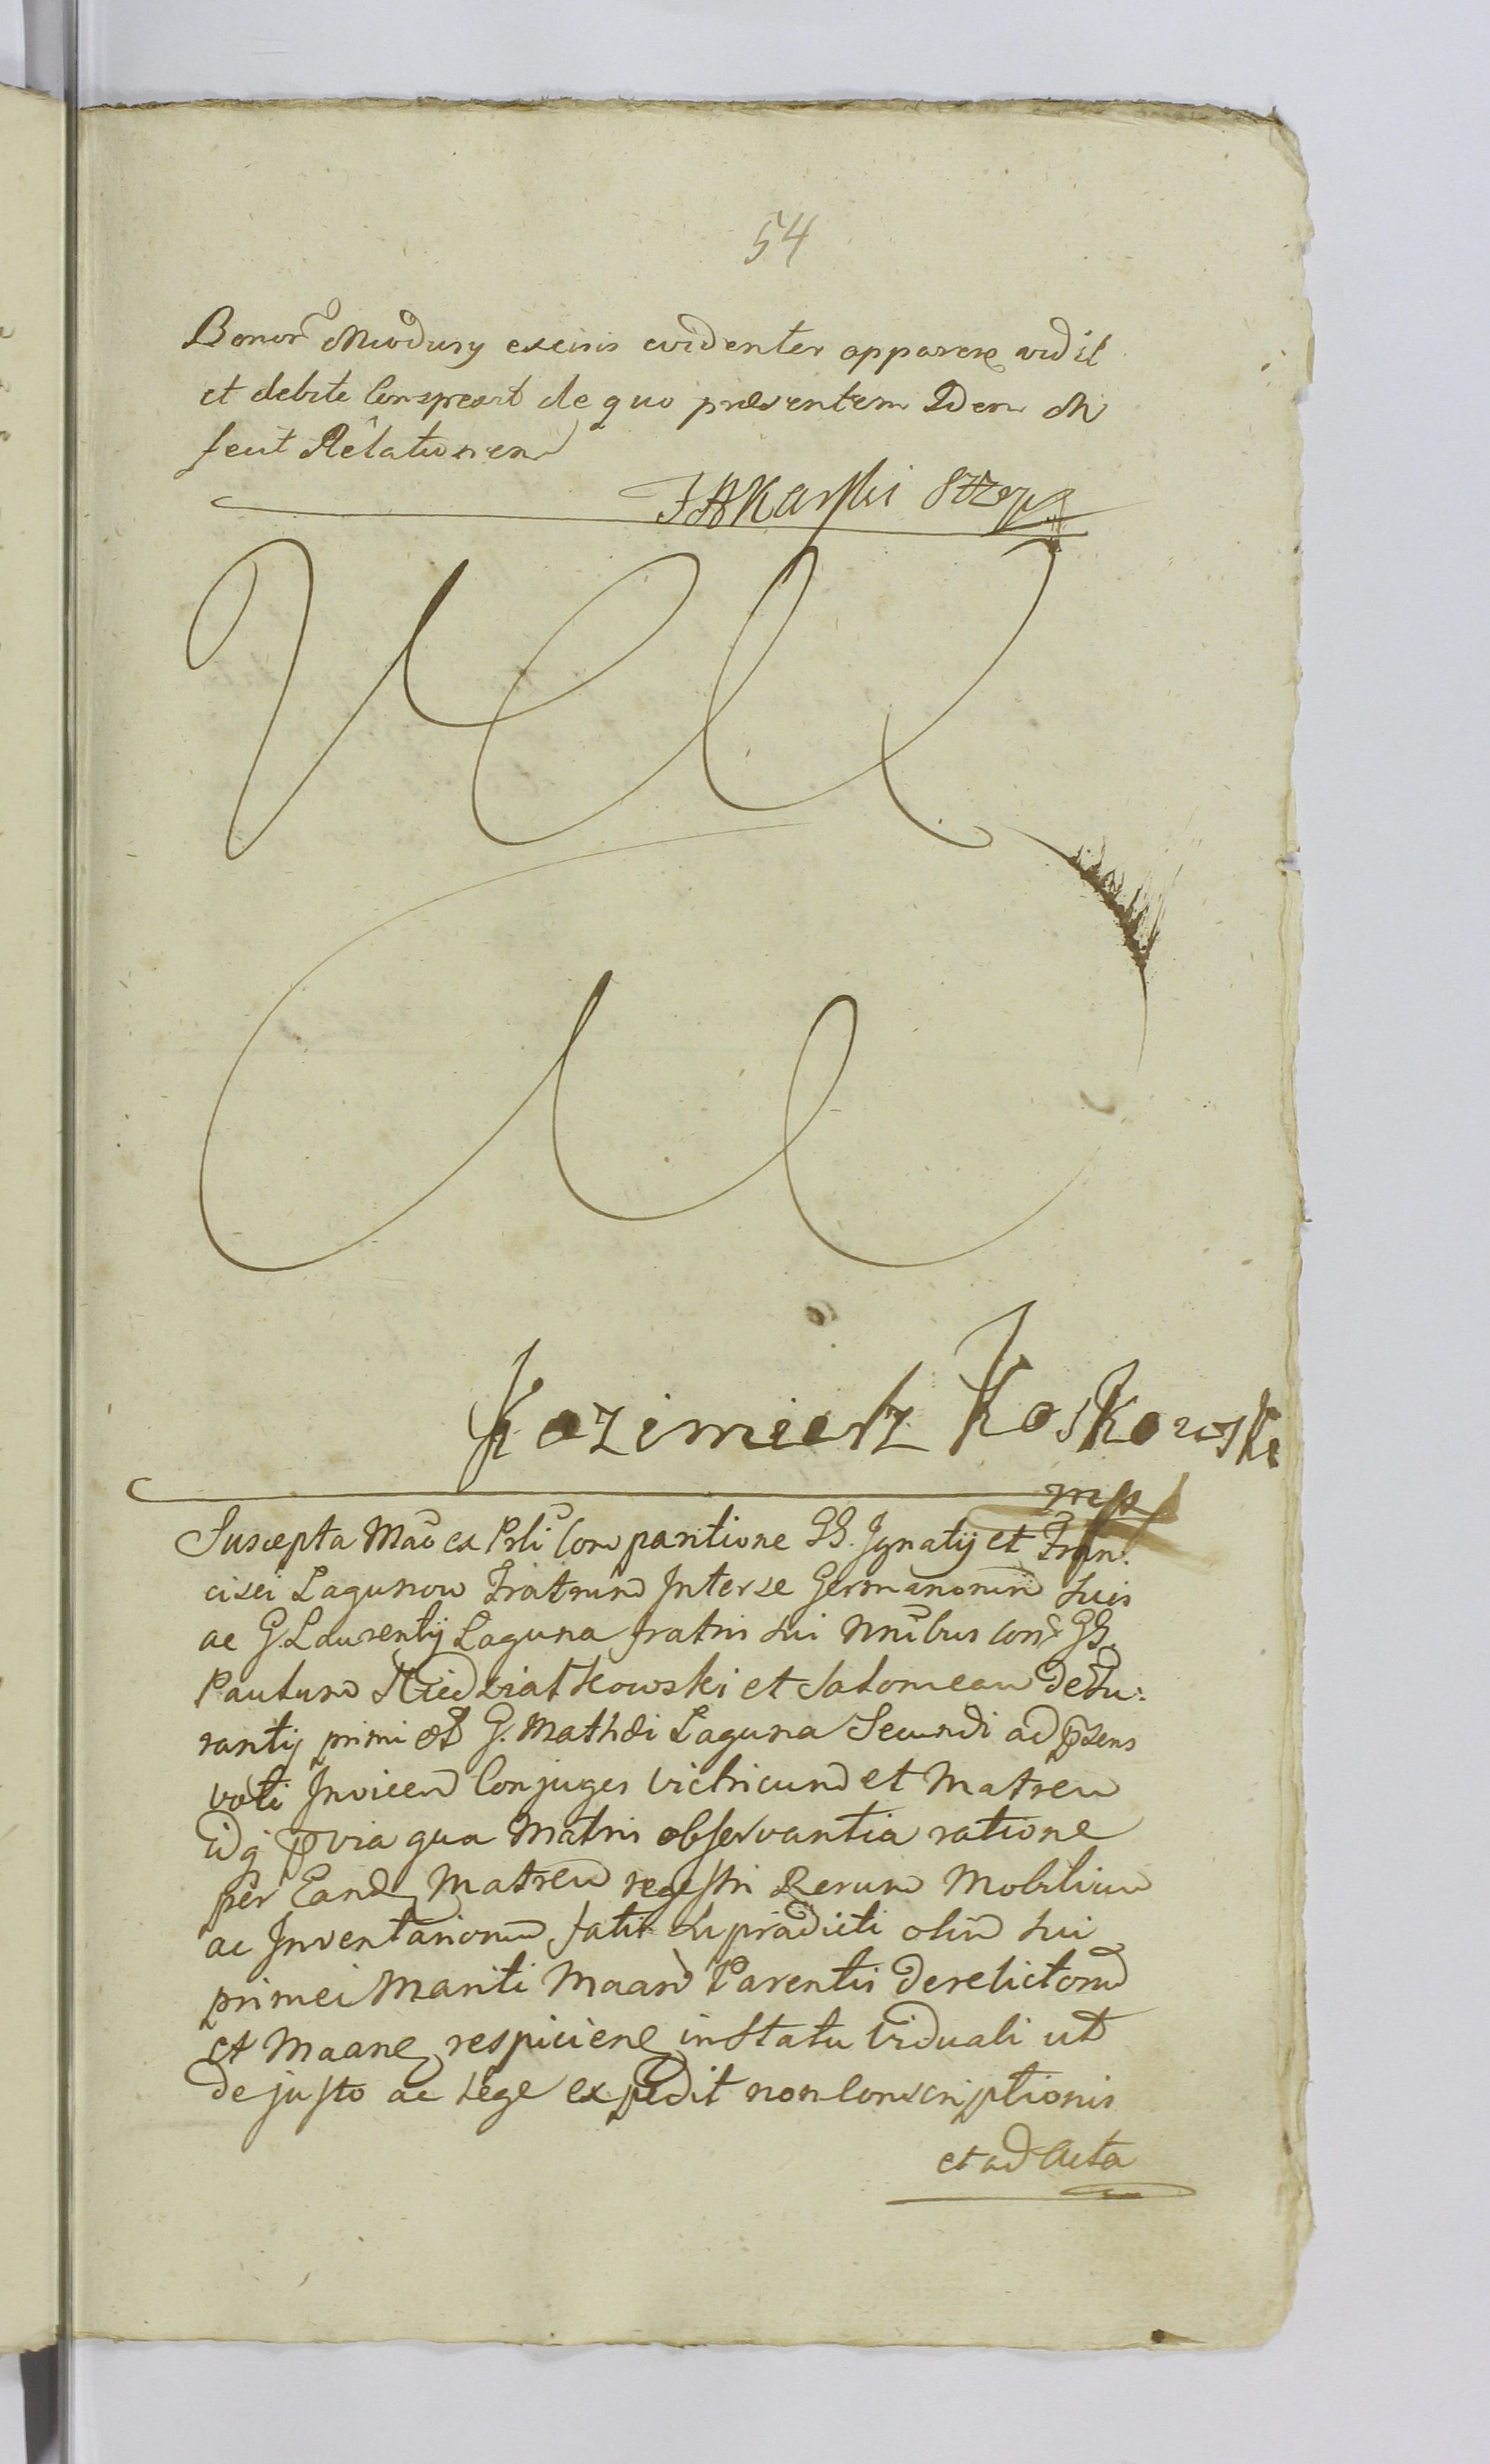 54
Bonor Miodusy excisis evidenter apparere vidit
et debite Conspexit de quo præsentem Idem M
fecit Relationem
Kazimierz Koskowski
mp
Suscepta Mâo ex Prli Comparitione GG. Ignatij et Fran.
cisci Lagunow Fratrum Inter se Germanorum suis
ac G. Laurentij Laguna fratris sui Nnibus Con GG.
Paulum Niedziałkowski et Salomeam de Du:
rantij primi et G. Mathæi Laguna Secundi ad psens
voti Invicem Conjuges Victricum et Matrem
idq pvia qua Matris observantia ratione
per Eand Matrem regestri Rerum Mobilium
ac Inventariorum fatis supradicti olim sui
primei Mariti Maand Parentis derelictorum
et Maane respiciene in Statu Viduali ut
de justo ac Lege expedit non Conscriptionis
et ad Acta